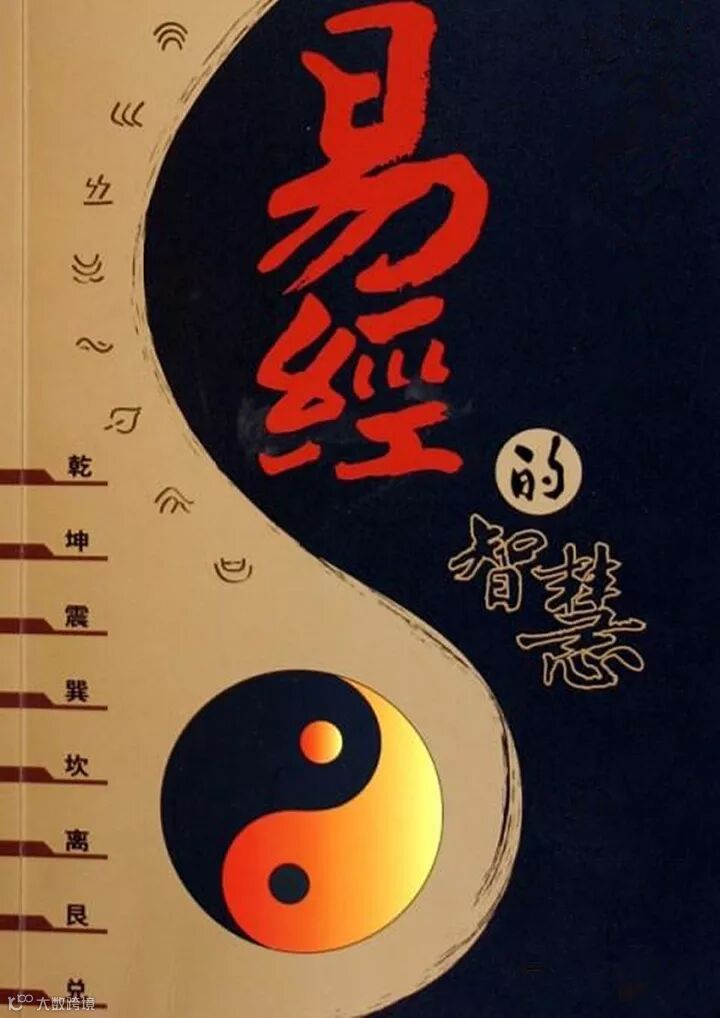 易經
的
智慧
乾
坤
震
巽
坎
离
艮
兑
大数跨境